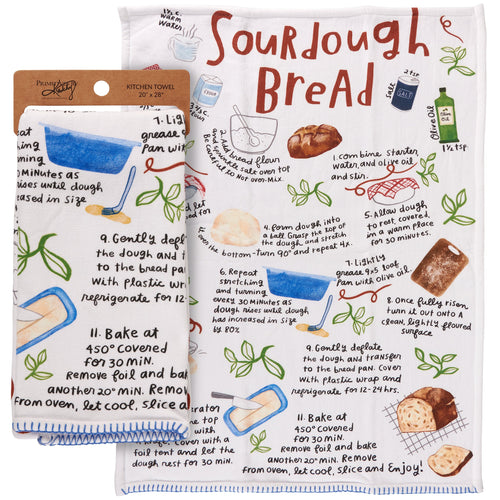 Primitives by Kathy
KITCHEN TOWEL
20" x 28"
7. Lightly
grease
pan with
stretching
and turning
30 minutes as
rises until dough
increased in size
let
for
9. Gently deflate
the dough and t
to the bread pan. Cover
with plastic wrap
refrigerate for 12-
11. Bake at
450° covered
for 30 min.
Remove foil and bake
another 20° min. Remove
from oven, let cool, slice a
warm
water
SOURDOUGH
BREAD
2 tsp
Salt
SALT
Olive Oil
1½ tsp
3 ½ c.
flour
2. Add bread flour
and sprinkle salt over top
Be careful to not over-mix.
1. Combine starter,
water, and olive oil,
and stir.
4. Form dough into
a ball. Grasp the top of
the dough, and stretch
over the bottom-Turn 90° and repeat 4x.
5. Allow dough
to rest, covered,
in a warm place
for 30 minutes.
6. Repeat
stretching
and turning
every 30 minutes as
dough rises until dough
has increased in size
by 80%
7. Lightly
grease 9x5 loaf
pan with olive oil.
8. Once fully risen
turn it out onto a
clean, lightly floured
surface
9. Gently deflate
the dough and transfer
to the bread pan. Cover
with plastic wrap and
refrigerate for 12-24 hrs.
erator
e top
with a
Cover with a
foil tent and let the
dough rest for 30 min.
11. Bake at
450° covered
for 30 min.
Remove foil and bake
another 20° min. Remove
from oven, let cool, slice and Enjoy!